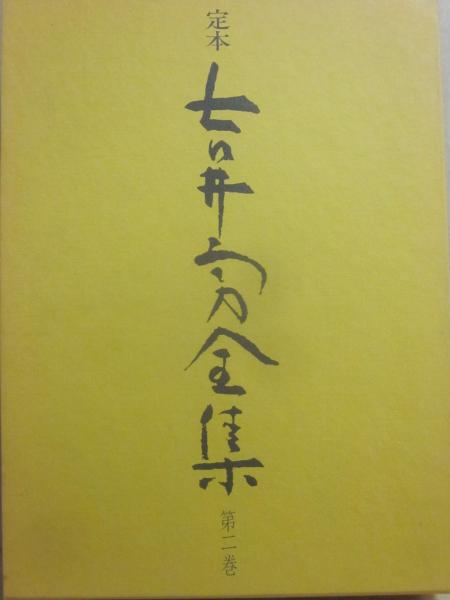 定本
吉井勇全集
第二巻